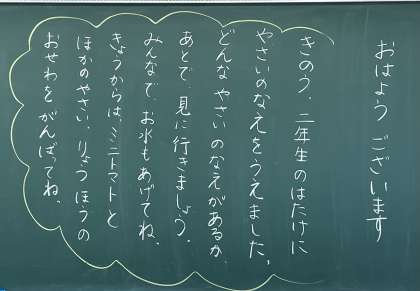 おはよう ございます
きのう、二年生のはたけに
やさいのなえをうえました。
どんな やさい のなえがあるか、
あとで、見に行きましょう。
みんなで、お水もあげてね。
きょうからは、ミニトマトと
ほかのやさい、りょうほうの
おせわを がんばってね。